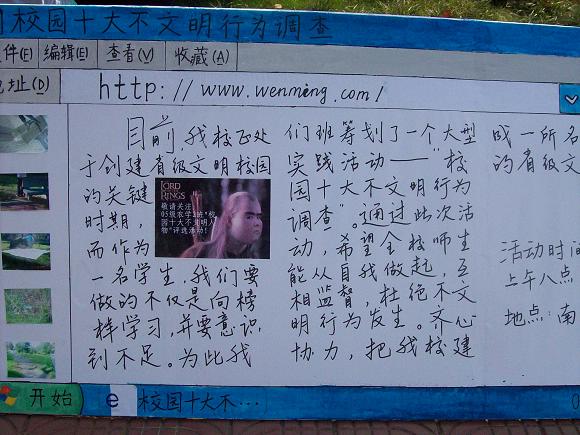 校园十大不文明行为调查
件(E) 编辑(E) 查看(V) 收藏(A)
地址(D) http://www.wenming.com/
目前,我校正处
于创建省级文明校园
的关键
时期,
而作为
一名学生,我们要
做的不仅是向榜
样学习,并要意识
到不足。为此我
LORD
RINGS
敬请关注
05级农学1班"校
园十大不文明人
物"评选活动!
们班筹划了一个大型
实践活动——"校
园十大不文明行为
调查"。通过此次活
动,希望全校师生
能从自我做起,互
相监督,杜绝不文
明行为发生。齐心
协力,把我校建
成一所名
的省级文
活动时间
上午八点
地点:南
开始 e 校园十大不…